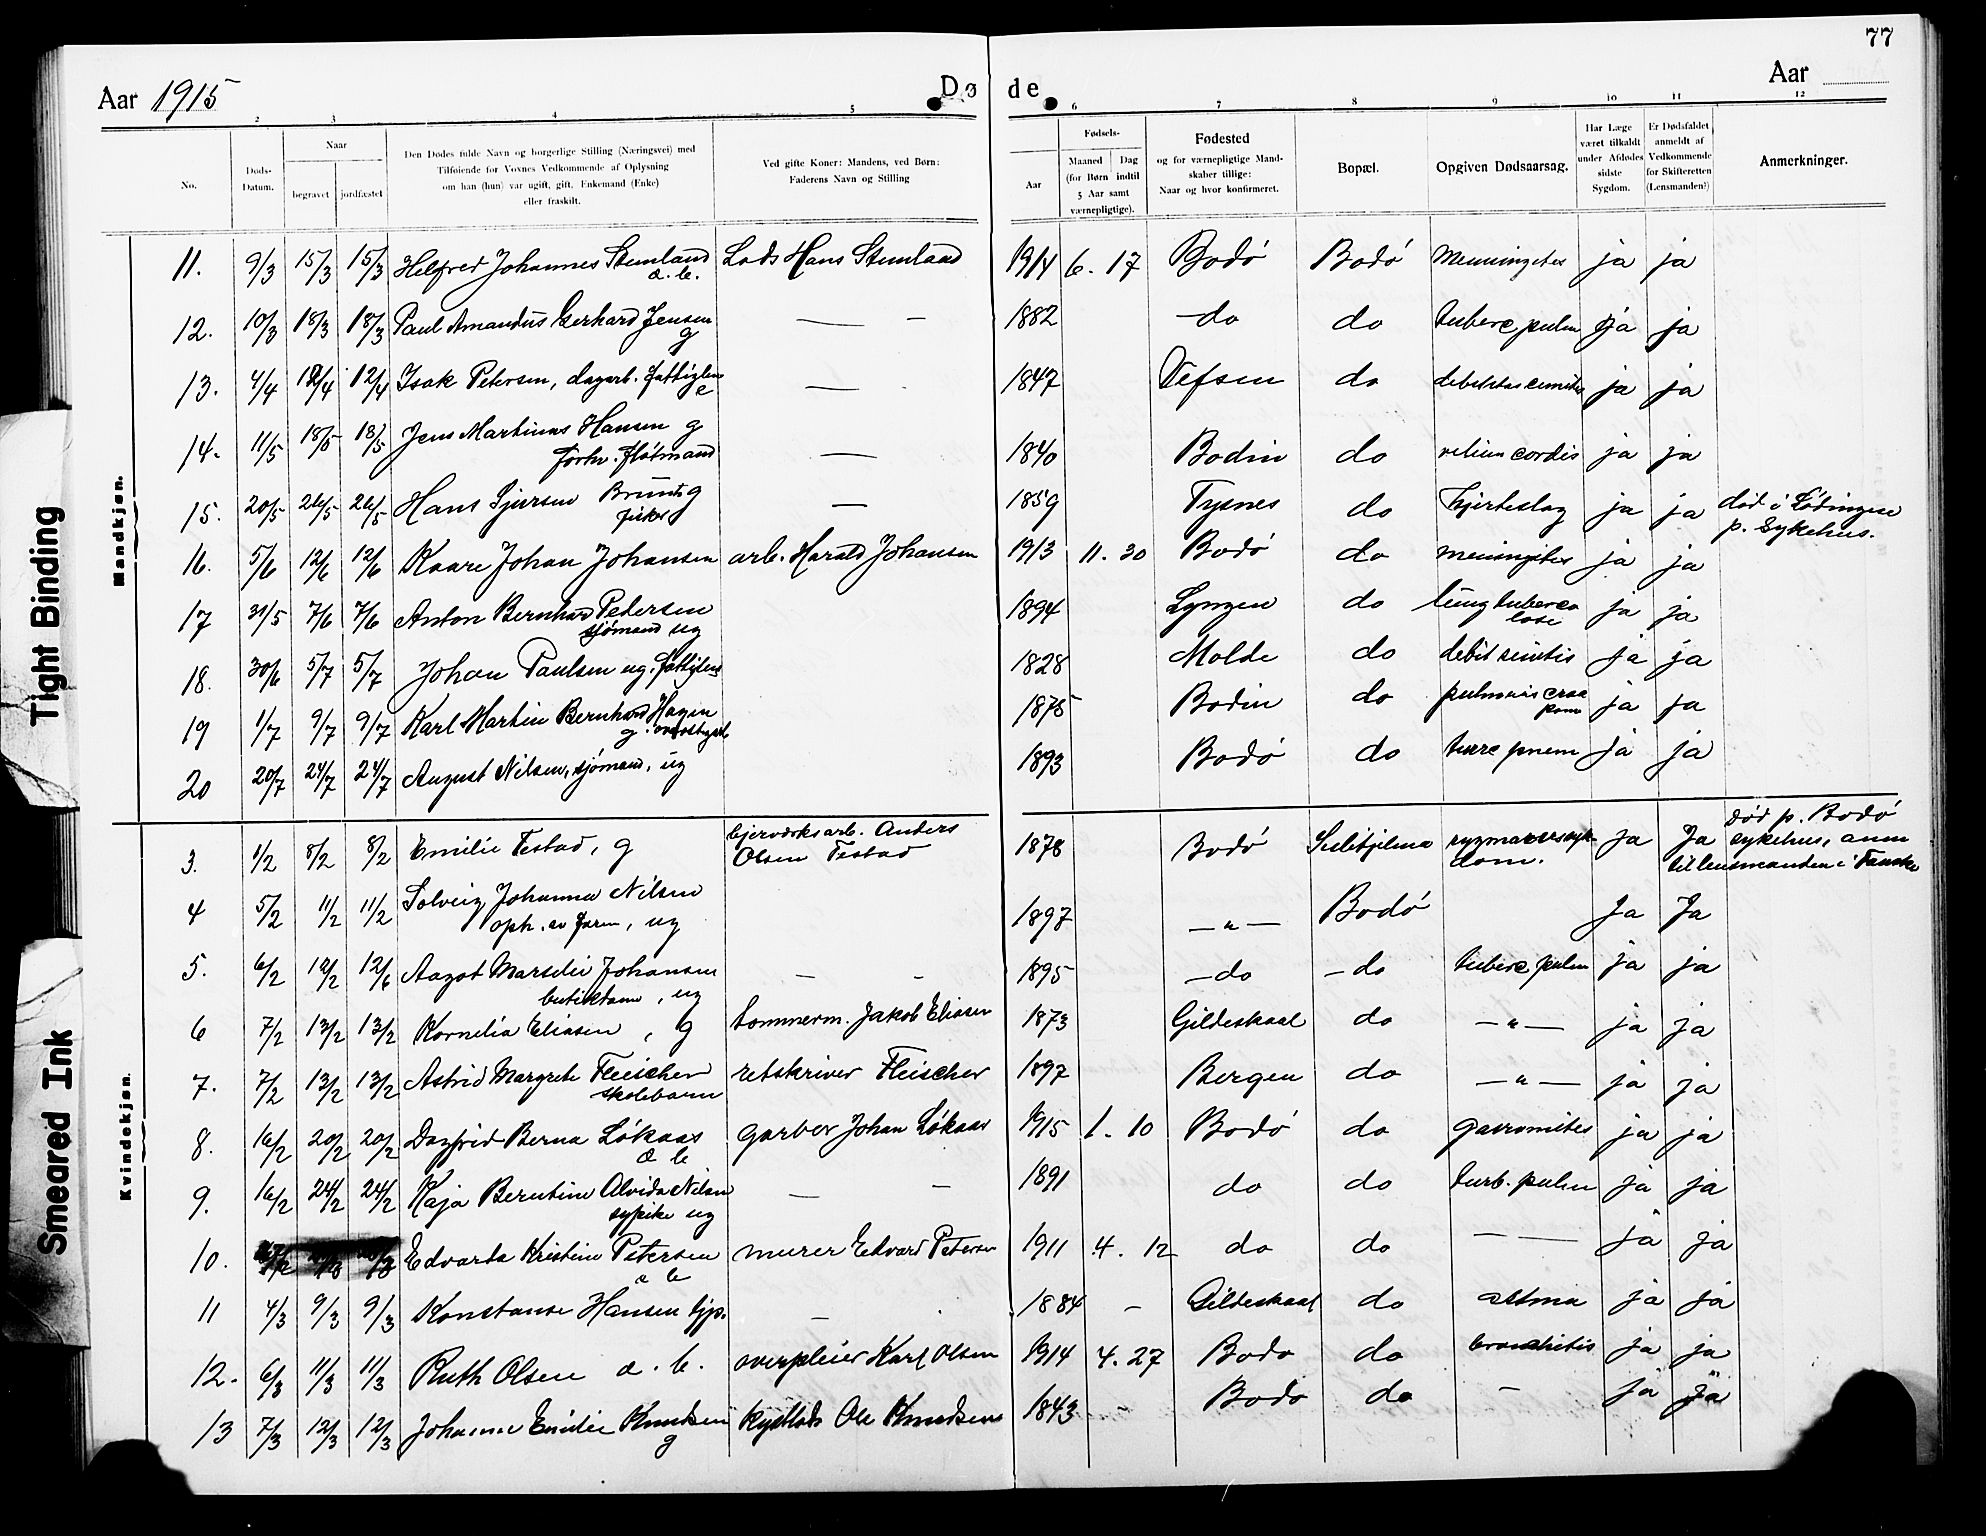 77
Aar 1915
Dø de
Aar
2 3 4 5 6 7 8 9 10 11 12
No.
Døds-Datum.
Naar
begravet
jordfæstet
Den Dødes fulde Navn og borgerlige Stilling (Næringsvei) med
Tilføiende for Voxnes Vedkommende af Oplysning
om han (hun) var ugift, gift, Enkemand (Enke)
eller fraskilt.
Ved gifte Koner: Mandens, ved Børn:
Faderens Navn og Stilling
Aar
Fødsels-
Maaned Dag
(for Børn indtil
5 Aar samt
værnepligtige).
Fødested
og for værnepligtige Mand-
skaber tillige:
Naar og hvor konfirmeret.
Bopæl.
Opgiven Dødsaarsag.
Har Læge
været tilkaldt
under Afdødes
sidste
Sygdom.
Er Dødsfaldet
anmeldt af
Vedkommende
for Skifteretten
(Lensmanden?)
Anmerkninger.
Tight Binding
Smeared Ink
Mandkjøn.
11. 9/3 15/3 15/3 Helfred Johannes Stemland Lods Hans Stemland 1914 6. 17 Bodó Bodó Menningites ja ja
a. b.
12. 10/3 18/3 18/3 Paul Amandus Gerhard Jensen — – 1882 –do do tuberc pulm ja ja
g
13. 4/4 12/4 12/4 Isak Petersen, dagarb. fattiglem — 1847 Vefsen do ja ja
e
14. 11/5 18/5 18/5 Jens Martinus Hansen g — 1840 Bodin do vitium cordis ja ja
forhv. fløtmand
15. 20/5 26/5 26/5 Hans Sjursen Bruns g — 1859 Tysnes do hjerteslag ja ja død i Lødingen
fisker
p. Sykehus.
16. 5/6 12/6 12/6 Kaare Johan Johansen arb. Harald Johansen 1913 11. 30 Bodó do meningites ja ja
17 31/5 7/6 7/6 Anton Bernhard Petersen 1894 Lyngen do lungtuberco ja ja
sjømand ug
lose
18. 30/6 5/7 5/7 Johan Paulsen ug. fattiglem 1828 Molde do debit senitis ja ja
19 1/7 9/7 9/7 Karl Martin Bernhard Hagen 1875 Bodin do ja ja
g.
20 20/7 24/7 24/7 August Nilsen, sjømand, ug 1893 Bodó do ja ja
Kvindekjøn.
3. 1/2 8/2 8/2 Emilie Festad, g bjerværksarb. Anders 1878 Bodó Sulitjelma ja Ja død p. Bodó
Olsen Festad
dom.
sykehus, anm
til lensmanden i Fauske
4 5/2 11/2 11/2 Solveig Johanna Nilsen 1897 –„– Bodó Ja Ja
oph. av faren, ug
5. 6/2 12/2 12/6 Aagot Marselie Johansen — – 1895 –do –do tuberc pulm ja ja
butikdame, ug
6 7/2 13/2 13/2 Kornelia Eliasen, g tommerm. Jakob Eliasen 1873 Gildeskaal do –„– ja ja
7. 7/2 13/2 13/2 Astrid Margrete Fleischer retskriver Fleischer 1897 Bergen do –„– ja ja
skolebarn
8. 16/2 20/2 20/2 Dagfrid Berna Løkaas garver Johan Løkaas 1915 1. 10 Bodó do ja ja
a b
9. 16/2 24/2 24/2 Kaja Berntine Alvida Nilsen — – 1891 do do turb. pulm ja ja
sypike ug
10. Edvarda Kristine Petersen murer Edvard Petersen 1911 4. 12 do do — — ja ja
a b
11 4/3 9/3 9/3 Konstanse Hansen tjp. – 1884 – Gildeskaal do astma ja ja
12. 6/3 11/3 11/3 Ruth Olsen a. b. Karl Olsen 1914 4. 27 Bodo do bronchitis ja ja
13 7/3 12/3 12/3 Johanne Emilie Knudsen Kystlods Ole Knudsen 1843 – Bodo do – ja ja
g